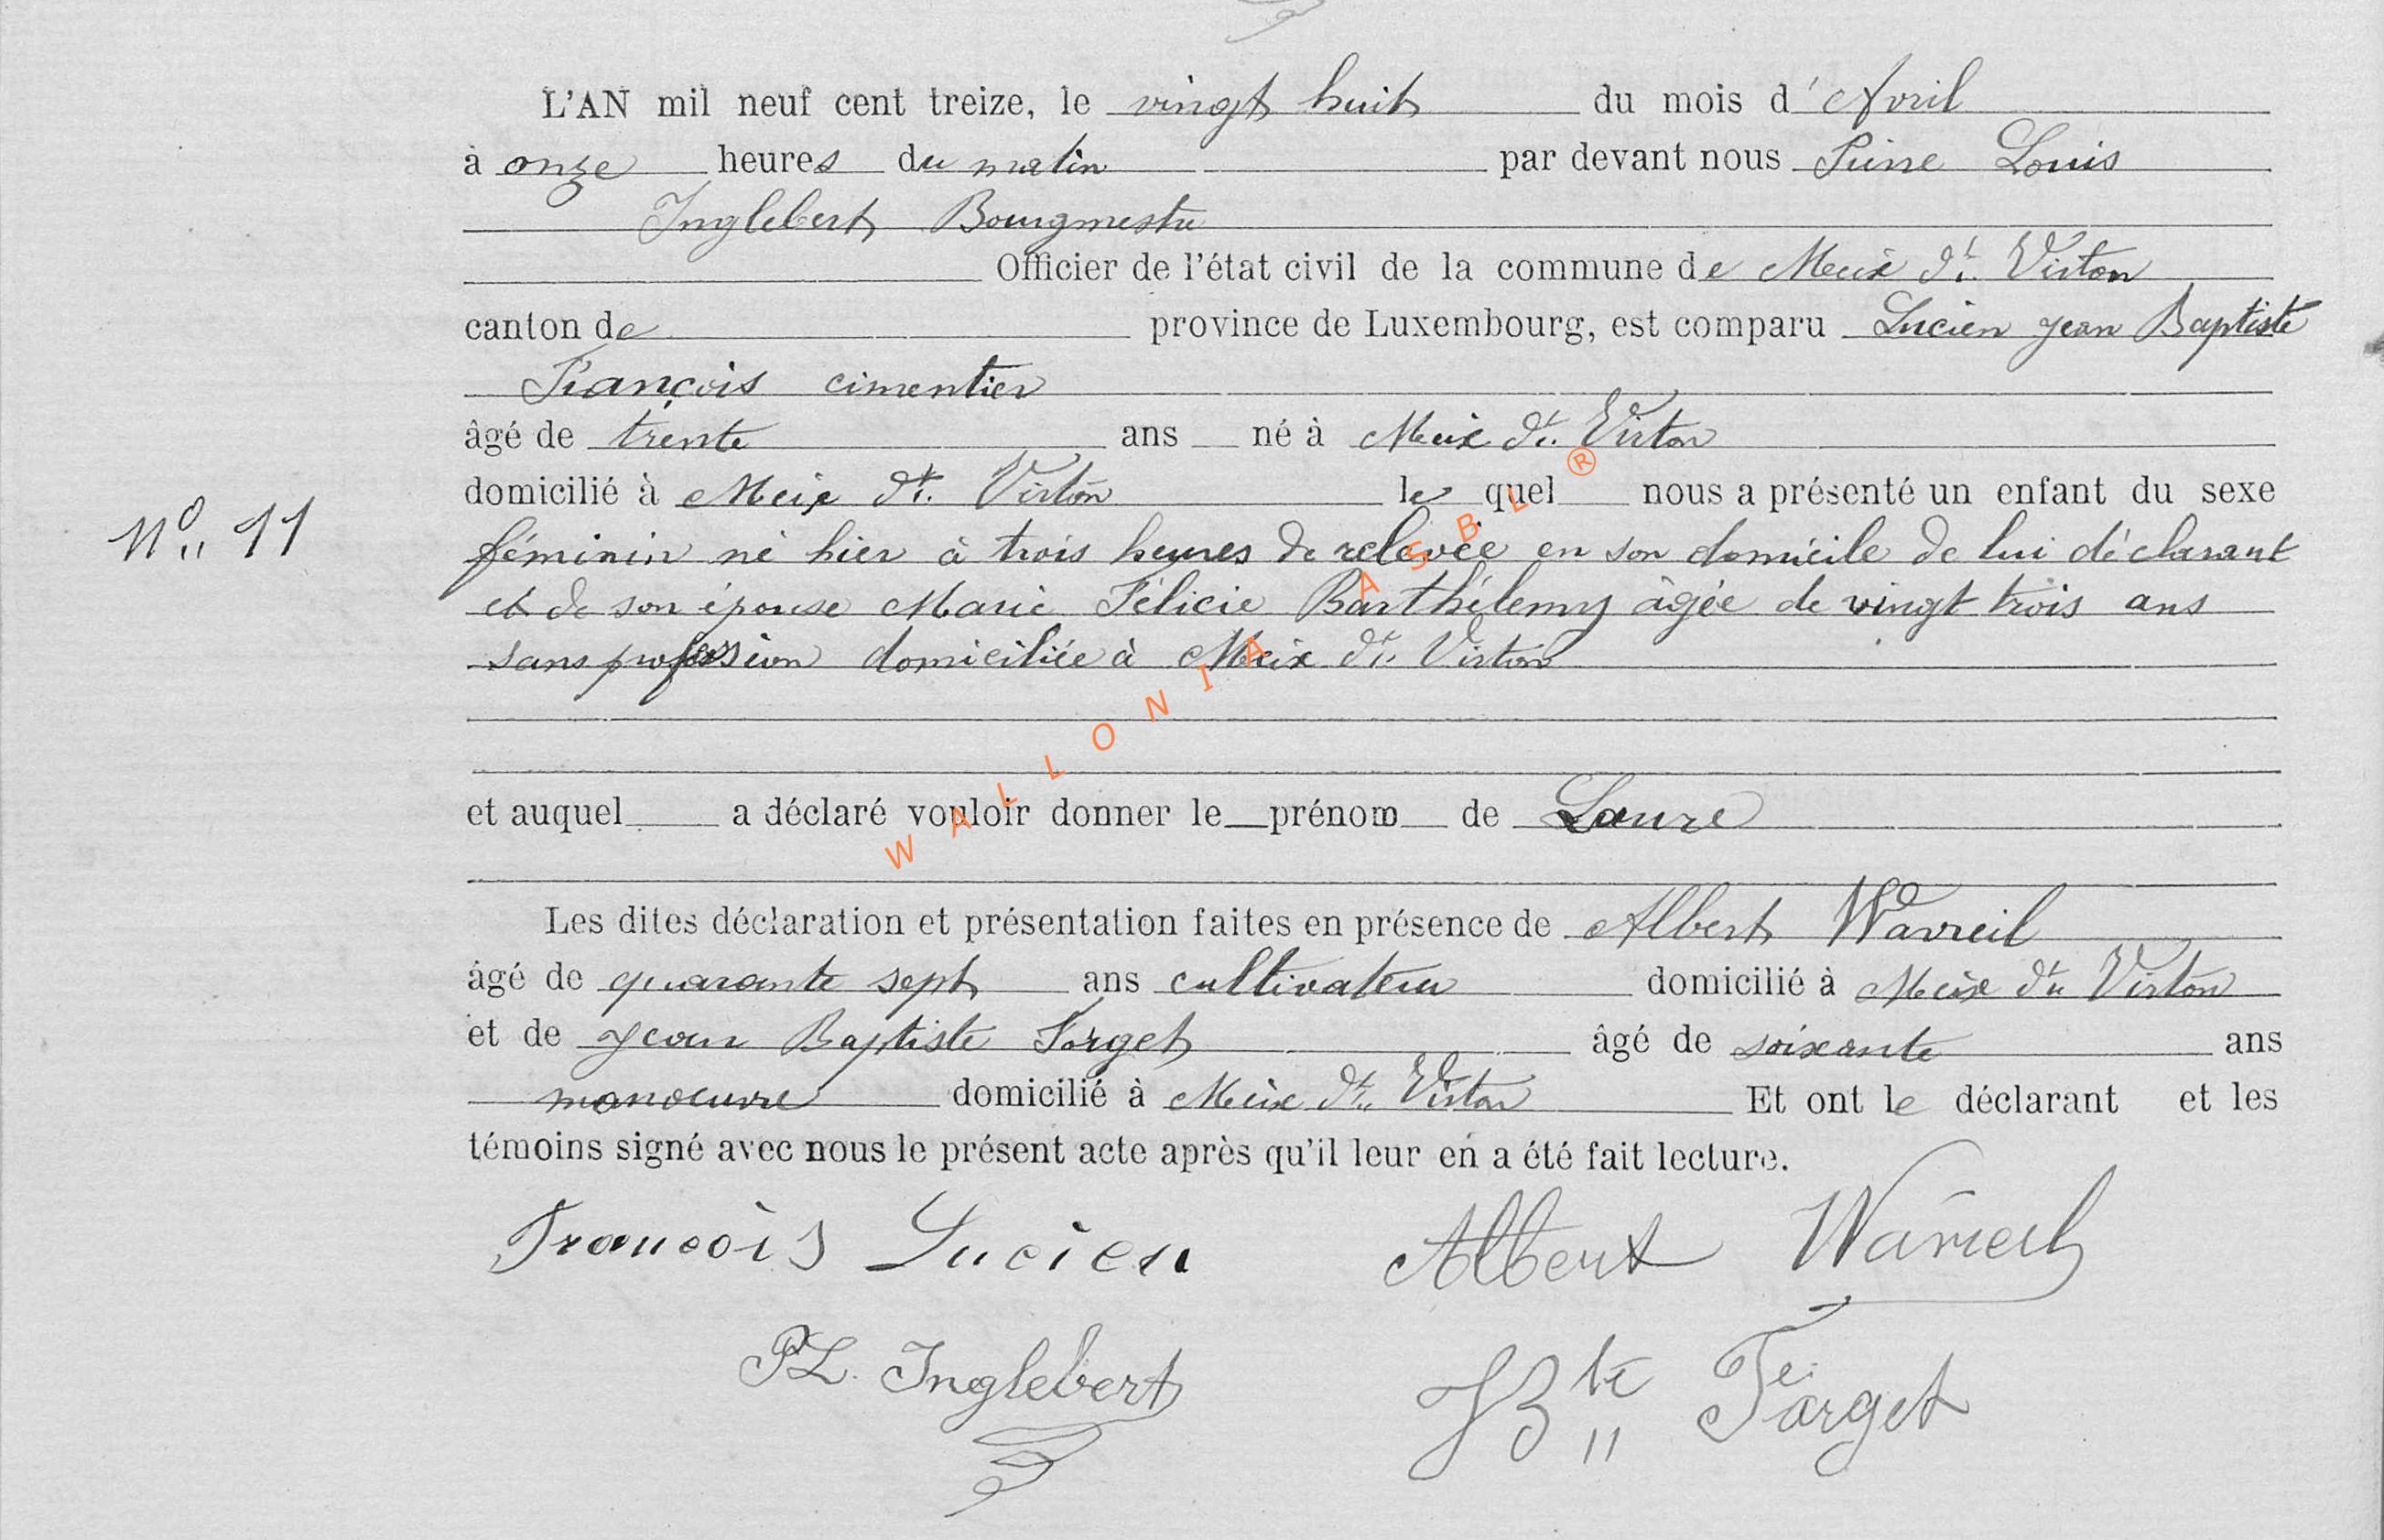 L'AN mil neuf cent treize, le vingt huit du mois d'Avril
à onze heures du matin par devant nous Pierre Louis
Inglebert Bourgmestre
Officier de l'état civil de la commune de Meix dt. Virton
canton de province de Luxembourg, est comparu Lucien Jean Baptiste
François cimentier
âgé de trente ans né à Meix dt. Virton
domicilié à Meix dt. Virton lequel nous a présenté un enfant du sexe
No. 11
féminin né hier à trois heures de relevée en son domicile de lui déclarant
et de son épouse Marie Félicie Barthélemy âgée de vingt trois ans
sans profession domiciliée à Meix dt. Virton
et auquel a déclaré vouloir donner le prénom de Laure
Les dites déclaration et présentation faites en présence de Albert Wavreil
âgé de quarante sept ans cultivateur domicilié à Meix dt. Virton
et de Jean Baptiste Forget âgé de soixante ans
manoeuvre domicilié à Meix dt. Virton Et ont le déclarant et les
témoins signé avec nous le présent acte après qu'il leur en a été fait lecture.
François Lucien Albert Wavreil
PL. Inglebert JBte Forget
WALLONIA ASBL ®